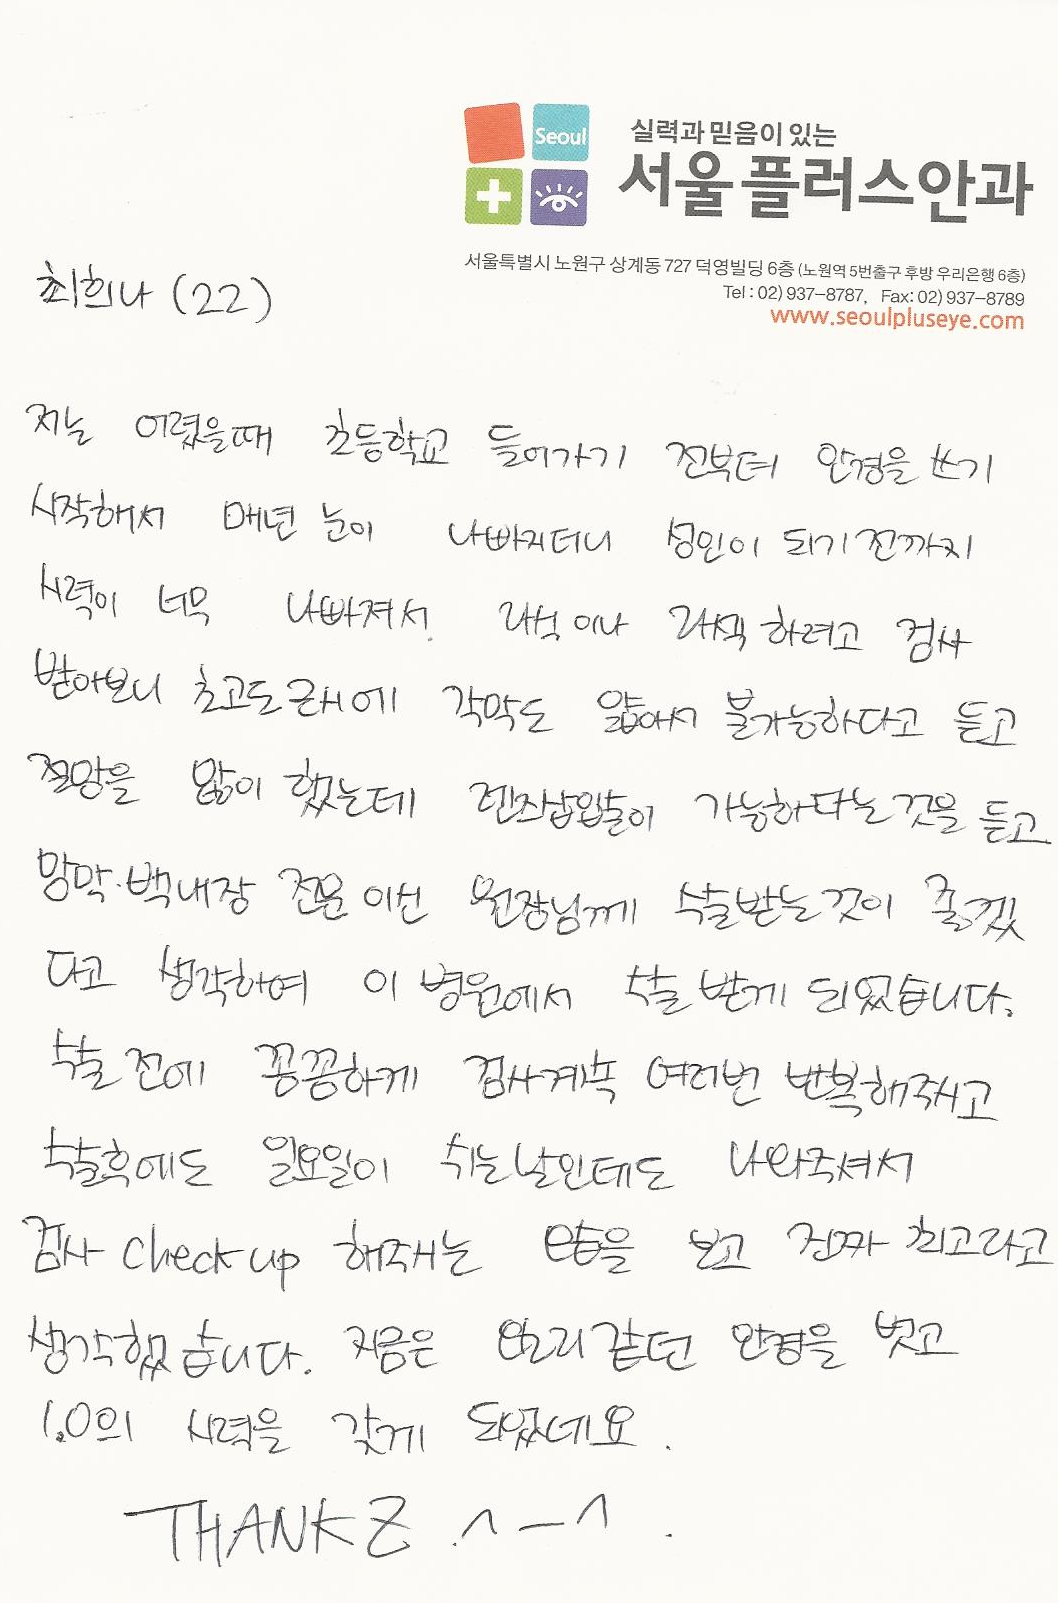 Seoul
실력과 믿음이 있는
서울플러스안과
서울특별시 노원구 상계동 727 덕영빌딩 6층 (노원역 5번출구 후방 우리은행 6층)
Tel : 02) 937-8787, Fax: 02) 937-8789
www.seoulpluseye.com
최희나 (22)
저는 어렸을때 초등학교 들어가기 전부터 안경을 쓰기
시작해서 매년 눈이 나빠지더니 성인이 되기전까지
시력이 너무 나빠져서 라식이나 라섹하려고 검사
받아보니 초고도근시에 각막도 얇아서 불가능하다고 듣고
절망을 많이 했는데 렌즈삽입술이 가능하다는것을 듣고
망막·백내장 전문이신 원장님께 수술받는것이 좋겠
다고 생각하여 이 병원에서 수술받게 되었습니다.
수술전에 꽁꽁하게 검사계속 여러번 반복해주시고
수술후에도 일요일이 쉬는날인데도 나와주셔서
검사 check up 해주시는 모습을 보고 진짜 최고라고
생각했습니다. 지금은 알리같던 안경을 벗고
1.0의 시력을 갖게 되었네요.
THANKZ ^ㅡ^.